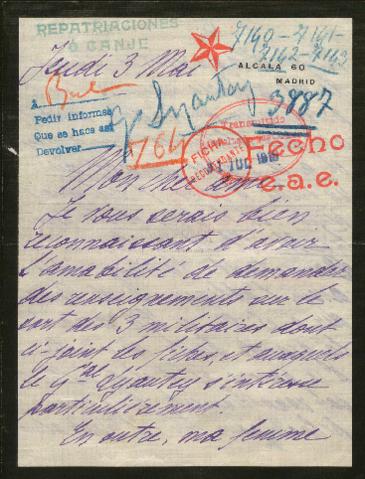 REPATRIACIONES
ó CANJE
7140-7141-
7142-7143
Jeudi 3 Mai
ALCALA 60
MADRID
A
Pedir informes
Que se hace así
Devolver
Gl Lyautey
3887
764
Fecho
e.a.e.
Mon cher ami,
Je vous serais bien
reconnaissant d'avoir
l'amabilité de demander
des renseignements sur le
sort des 3 militaires dont
ci-joint les fiches, et auxquels
le Gal Lyautey s'intéresse
particulièrement.
En outre, ma femme